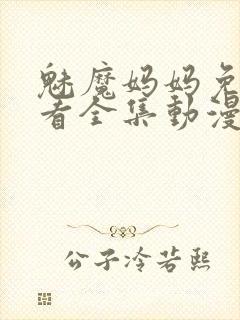 魅魔妈妈免
看全集動漫
公子冷若熙